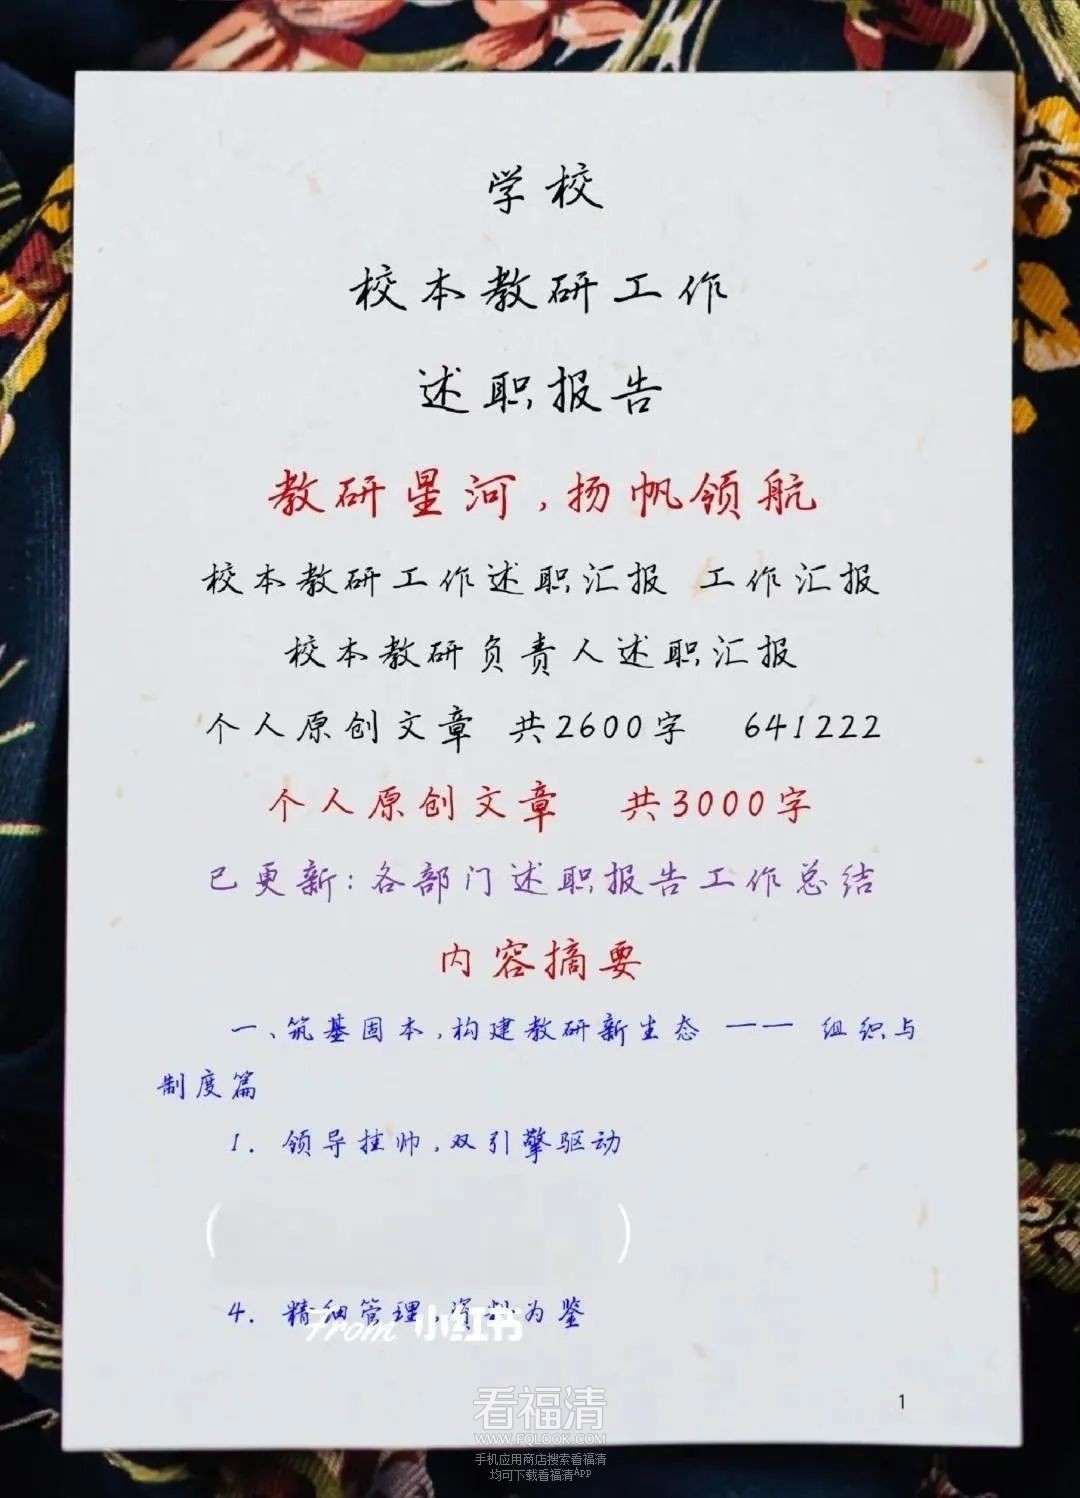 学校
校本教研工作
述职报告
教研星河,扬帆领航
校本教研工作述职汇报 工作汇报
校本教研负责人述职汇报
个人原创文章 共2600字 641222
个人原创文章 共3000字
已更新:各部门述职报告工作总结
内容摘要
一、筑基固本,构建教研新生态 —— 组织与
制度篇
1. 领导挂帅,双引擎驱动
( )
4. 精细管理,资料为鉴
From 小红书
1
看福清
WWW.FQLOOK.COM
手机应用商店搜索看福清
均可下载看福清App